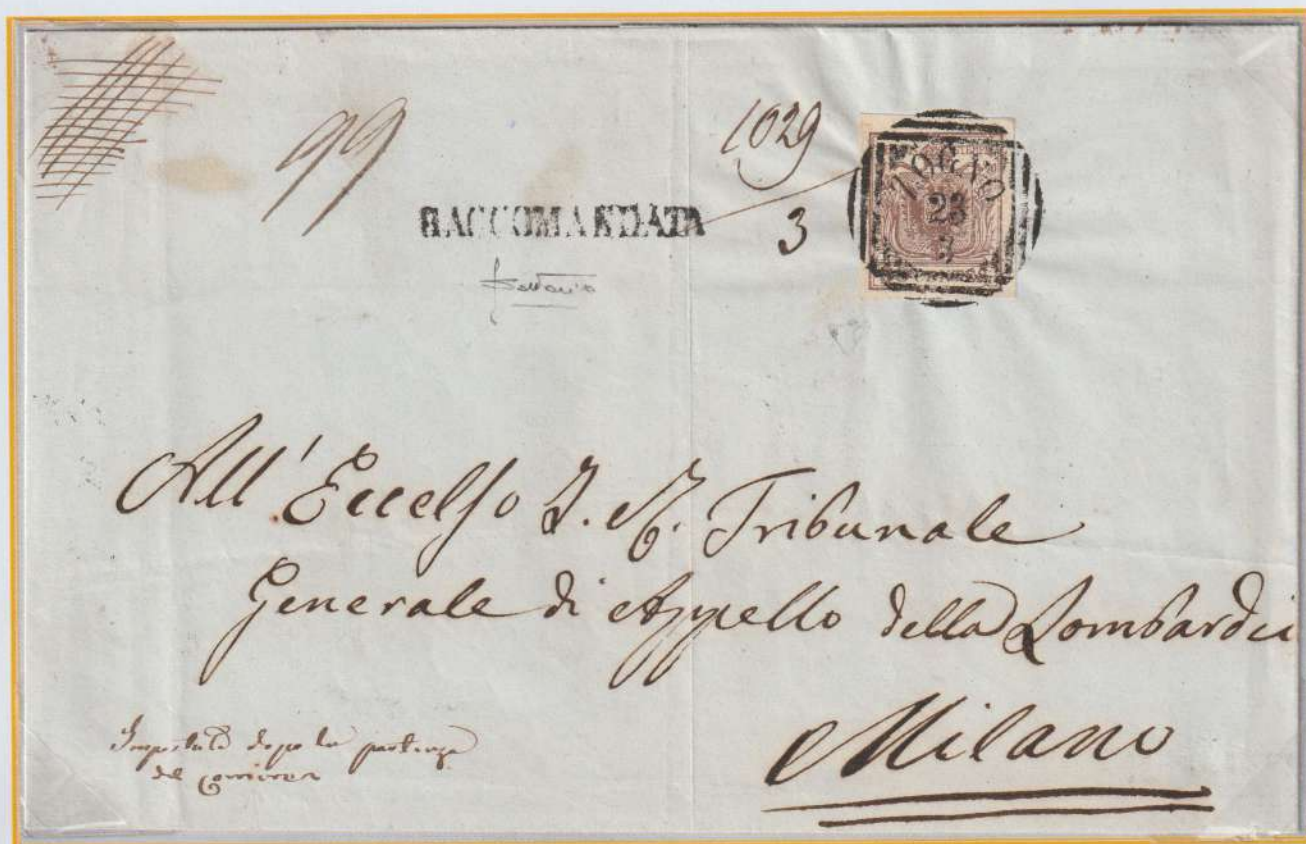 99
1029
3
RACCOMANDATA
ZOGNO
23
3
All' Eccelso I. R. Tribunale
Generale di Appello della Lombardia
Milano
Impostata dopo la partenza
del Corriere